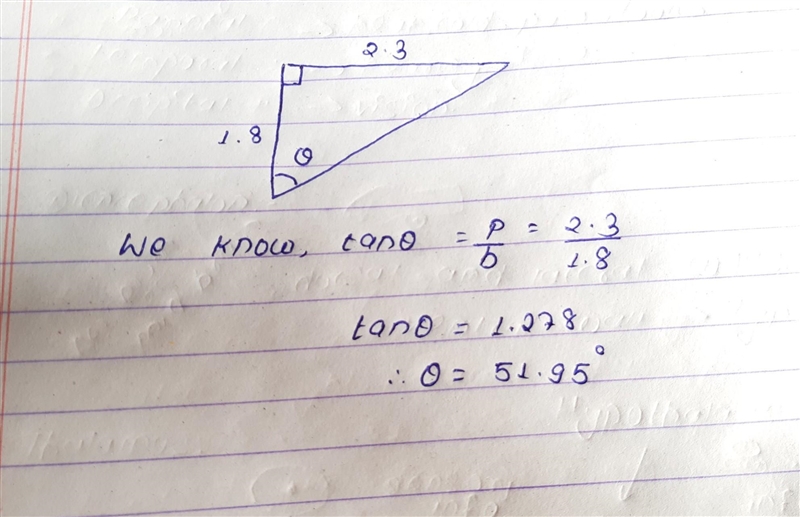 2.3
1.8
θ
We know, tanθ = p/b = 2.3/1.8
tanθ = 1.278
∴ θ = 51.95°